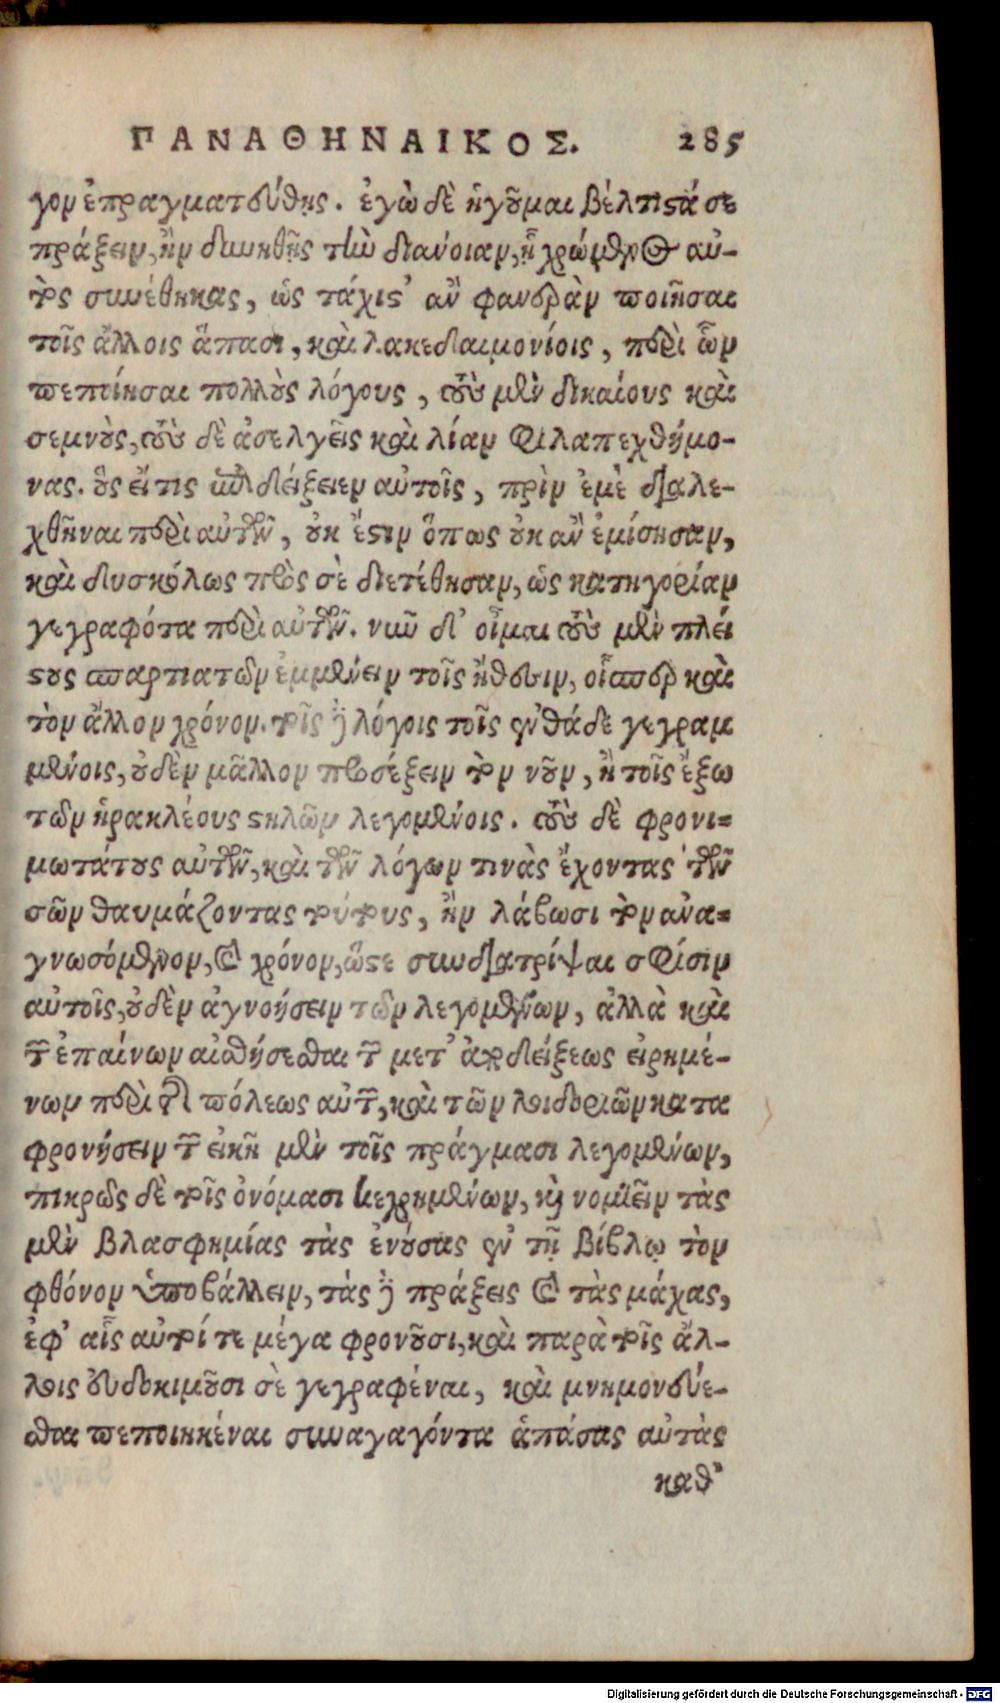 ΠΑΝΑΘΗΝΑΙΚΟΣ. 285
γον ἐπραγματεύθης. ἐγὼ δὲ ἡγοῦμαι βέλτιστά σε
πράξειν, ἢν δυνηθῇς τὴν διάνοιαν, ᾗ χρώμενος αὐ-
τὸς συνέθηκας, ὡς τάχιστ' ἂν φανερὰν ποιῆσαι
τοῖς ἄλλοις ἅπασι, καὶ λακεδαιμονίοις, περὶ ὧν
πεποίησαι πολλοὺς λόγους, τοὺς μὲν δικαίους καὶ
σεμνοὺς, τοὺς δὲ ἀσελγεῖς καὶ λίαν φιλαπεχθήμο-
νας. οὓς εἴ τις ἐπιδείξειεν αὐτοῖς, πρὶν ἐμὲ διαλε-
χθῆναι περὶ αὐτῶν, οὐκ ἔστιν ὅπως οὐκ ἂν ἐμίσησαν,
καὶ δυσκόλως πρὸς σὲ διετέθησαν, ὡς κατηγορίαν
γεγραφότα περὶ αὐτῶν. νῦν δ' οἶμαι τοὺς μὲν πλεί
στους σπαρτιατῶν ἐμμένειν τοῖς ἤθεσιν, οἷσπερ καὶ
τὸν ἄλλον χρόνον. τοῖς δὲ λόγοις τοῖς ἐνθάδε γεγραμ
μένοις, οὐδὲν μᾶλλον προσέξειν τὸν νοῦν, ἢ τοῖς ἔξω
τῶν ἡρακλέους στηλῶν λεγομένοις. τοὺς δὲ φρονι-
μωτάτους αὐτῶν, καὶ τῶν λόγων τινὰς ἔχοντας τῶν
σῶν θαυμάζοντας τούτους, ἢν λάβωσι τὸν ἀνα-
γνωσόμενον, καὶ χρόνον, ὥστε συνδιατρίψαι σφίσιν
αὐτοῖς, οὐδὲν ἀγνοήσειν τῶν λεγομένων, ἀλλὰ καὶ
τῶν ἐπαίνων αἰσθήσεσθαι τῶν μετ' ἀποδείξεως εἰρημέ-
νων περὶ τῆς πόλεως αὐτῶν, καὶ τῶν λοιδοριῶν κατα
φρονήσειν τῶν εἰκῇ μὲν τοῖς πράγμασι λεγομένων,
πικρῶς δὲ τοῖς ὀνόμασι κεχρημένων, καὶ νομιεῖν τὰς
μὲν βλασφημίας τὰς ἐνούσας ἐν τῇ βίβλῳ τὸν
φθόνον ὑποβάλλειν, τὰς δὲ πράξεις καὶ τὰς μάχας,
ἐφ' αἷς αὐτοί τε μέγα φρονοῦσι, καὶ παρὰ τοῖς ἄλ-
λοις εὐδοκιμοῦσι σὲ γεγραφέναι, καὶ μνημονεύε-
σθαι πεποιηκέναι συναγαγόντα ἁπάσας αὐτὰς
καθ'
Digitalisierung gefördert durch die Deutsche Forschungsgemeinschaft - DFG